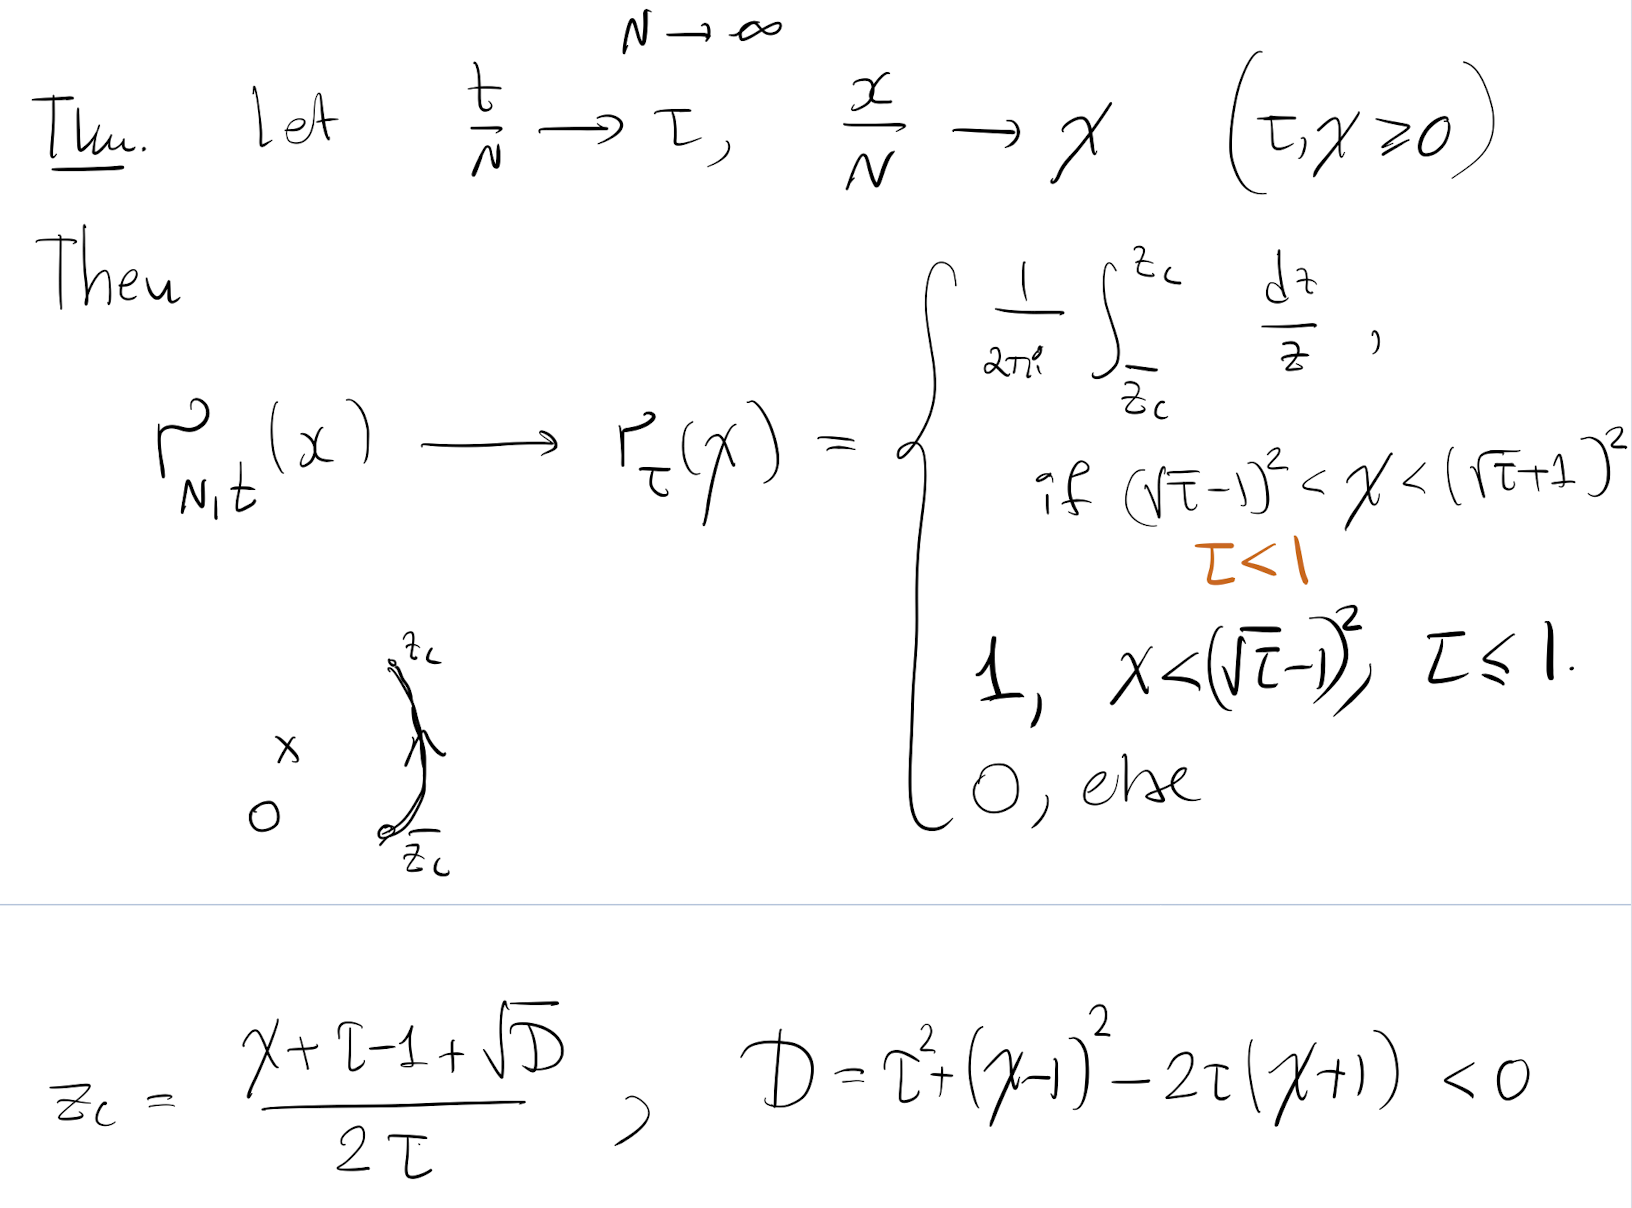 N → ∞
Thm. Let t/N → τ, x/N → χ (τ, χ ≥ 0)
Then
ρ_{N,t}(x) → ρ_τ(χ) = { 1/(2πi) ∫_{\overline{z_c}}^{z_c} dz/z ,
if (√τ-1)² < χ < (√τ+1)²
τ < 1
1, χ < (√τ-1)², τ ≤ 1.
0, else
z_c
x
0
\overline{z_c}
z_c = (χ+τ-1+√D)/(2τ) , D = τ²+(χ-1)² - 2τ(χ+1) < 0